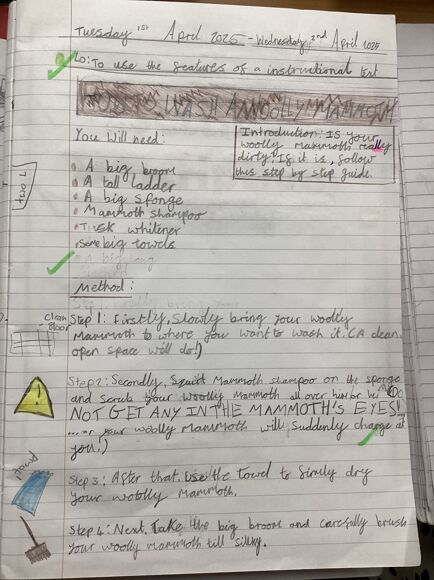 Tuesday 1st April 2025 - Wednesday 2nd April 2025
Lo: To use the features of a instructional text
HOW TO WASH A WOOLLY MAMMOTH
You Will need:
Introduction: Is your
woolly mammoth really
dirty? If it is, follow
this step by step guide.
• A big broom
• A tall ladder
• A big sponge
• Mammoth shampoo
• Tusk whitener
• Some big towels
• A big
Method:
Clean
floor
Step 1: Firstly, Slowly bring your woolly
Mammoth to where you want to wash it. (A clean
open space will do!)
Step 2: Secondly, Squirt Mammoth shampoo on the sponge
and scrub your woolly Mammoth all over him or her DO
NOT GET ANY IN THE MAMMOTH'S EYES!!
....or your woolly mammoth will suddenly charge at
you!)
towel
Step 3: After that, use the towel to firmly dry
your woolly Mammoth.
Step 4: Next, Take the big broom and carefully brush
your woolly mammoth till silky.